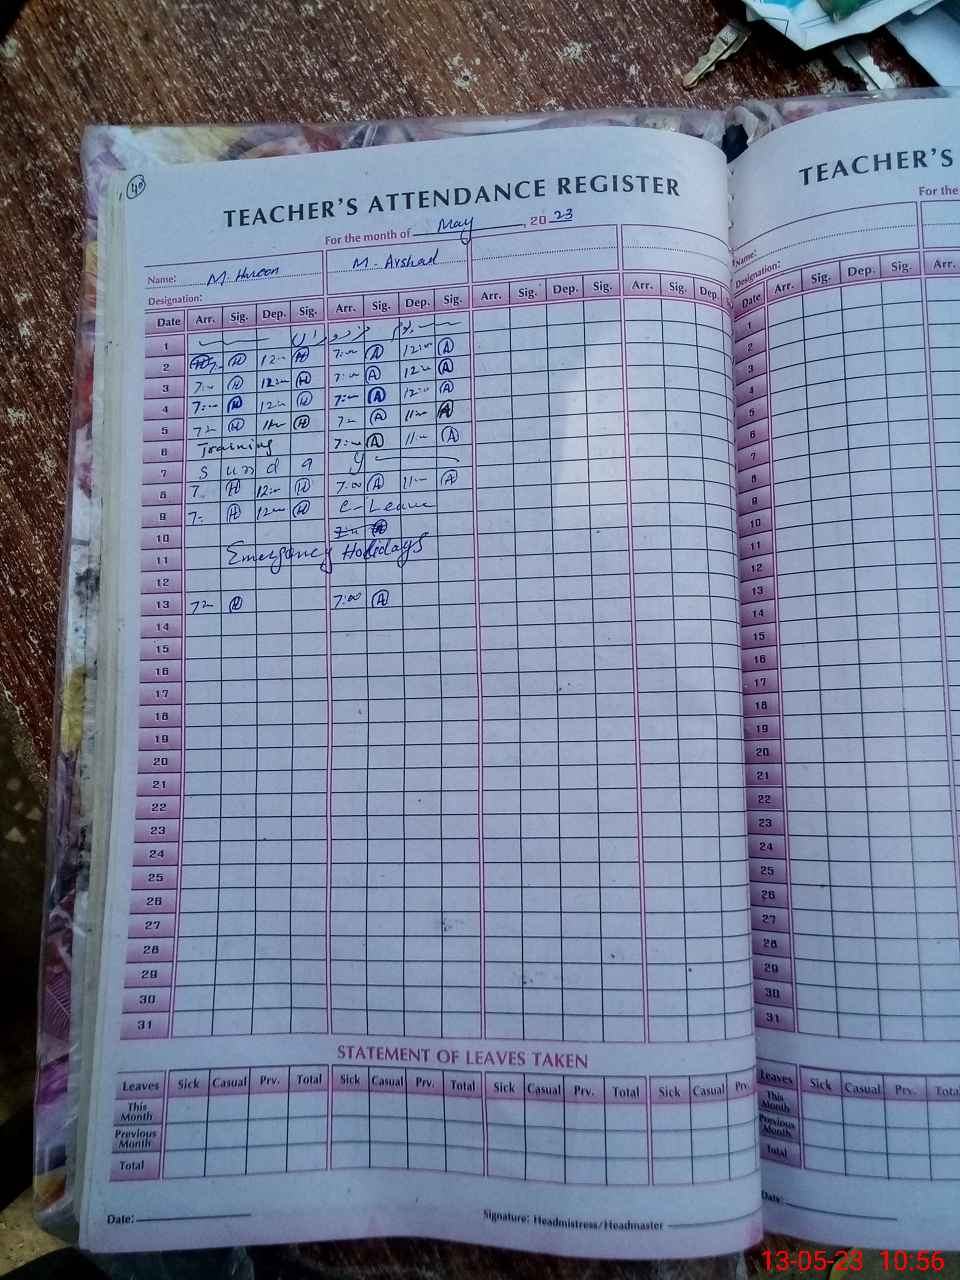 40
TEACHER'S ATTENDANCE REGISTER
For the month of May, 2023
Name: M. Haroon M. Arshad
Designation:
Date Arr. Sig. Dep. Sig. Arr. Sig. Dep. Sig. Arr. Sig. Dep. Sig. Arr. Sig. Dep.
1 یوم مزدوراں
2 7:00 H 12:00 H 7:00 A 12:00 A
3 7:00 H 12:00 H 7:00 A 12:00 A
4 7:00 H 12:00 H 7:00 A 12:00 A
5 7:00 H 11:00 H 7:00 A 11:00 A
6 Training 7:00 A 11:00 A
7 Sunday
8 7:00 H 12:00 H 7:00 A 11:00 A
9 7:00 H 12:00 H C-Leave
10 7:00 A
11 Emergency Holidays
12
13 7:00 H 7:00 A
14
15
16
17
18
19
20
21
22
23
24
25
26
27
28
29
30
31
STATEMENT OF LEAVES TAKEN
Leaves Sick Casual Prv. Total Sick Casual Prv. Total Sick Casual Prv. Total Sick Casual Prv.
This Month
Previous Month
Total
Date:
Signature: Headmistress/Headmaster
TEACHER'S
For the
Name:
Designation:
Date Arr. Sig. Dep. Sig. Arr.
1
2
3
4
5
6
7
8
9
10
11
12
13
14
15
16
17
18
19
20
21
22
23
24
25
26
27
28
29
30
31
Leaves Sick Casual Prv. Tota
This Month
Previous Month
Total
Date:
13-05-23 10:56